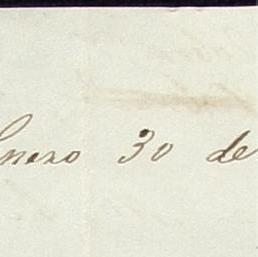 Enero 30 de